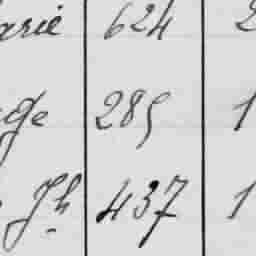 arie 624 2
age 285 1
Jh 437 1